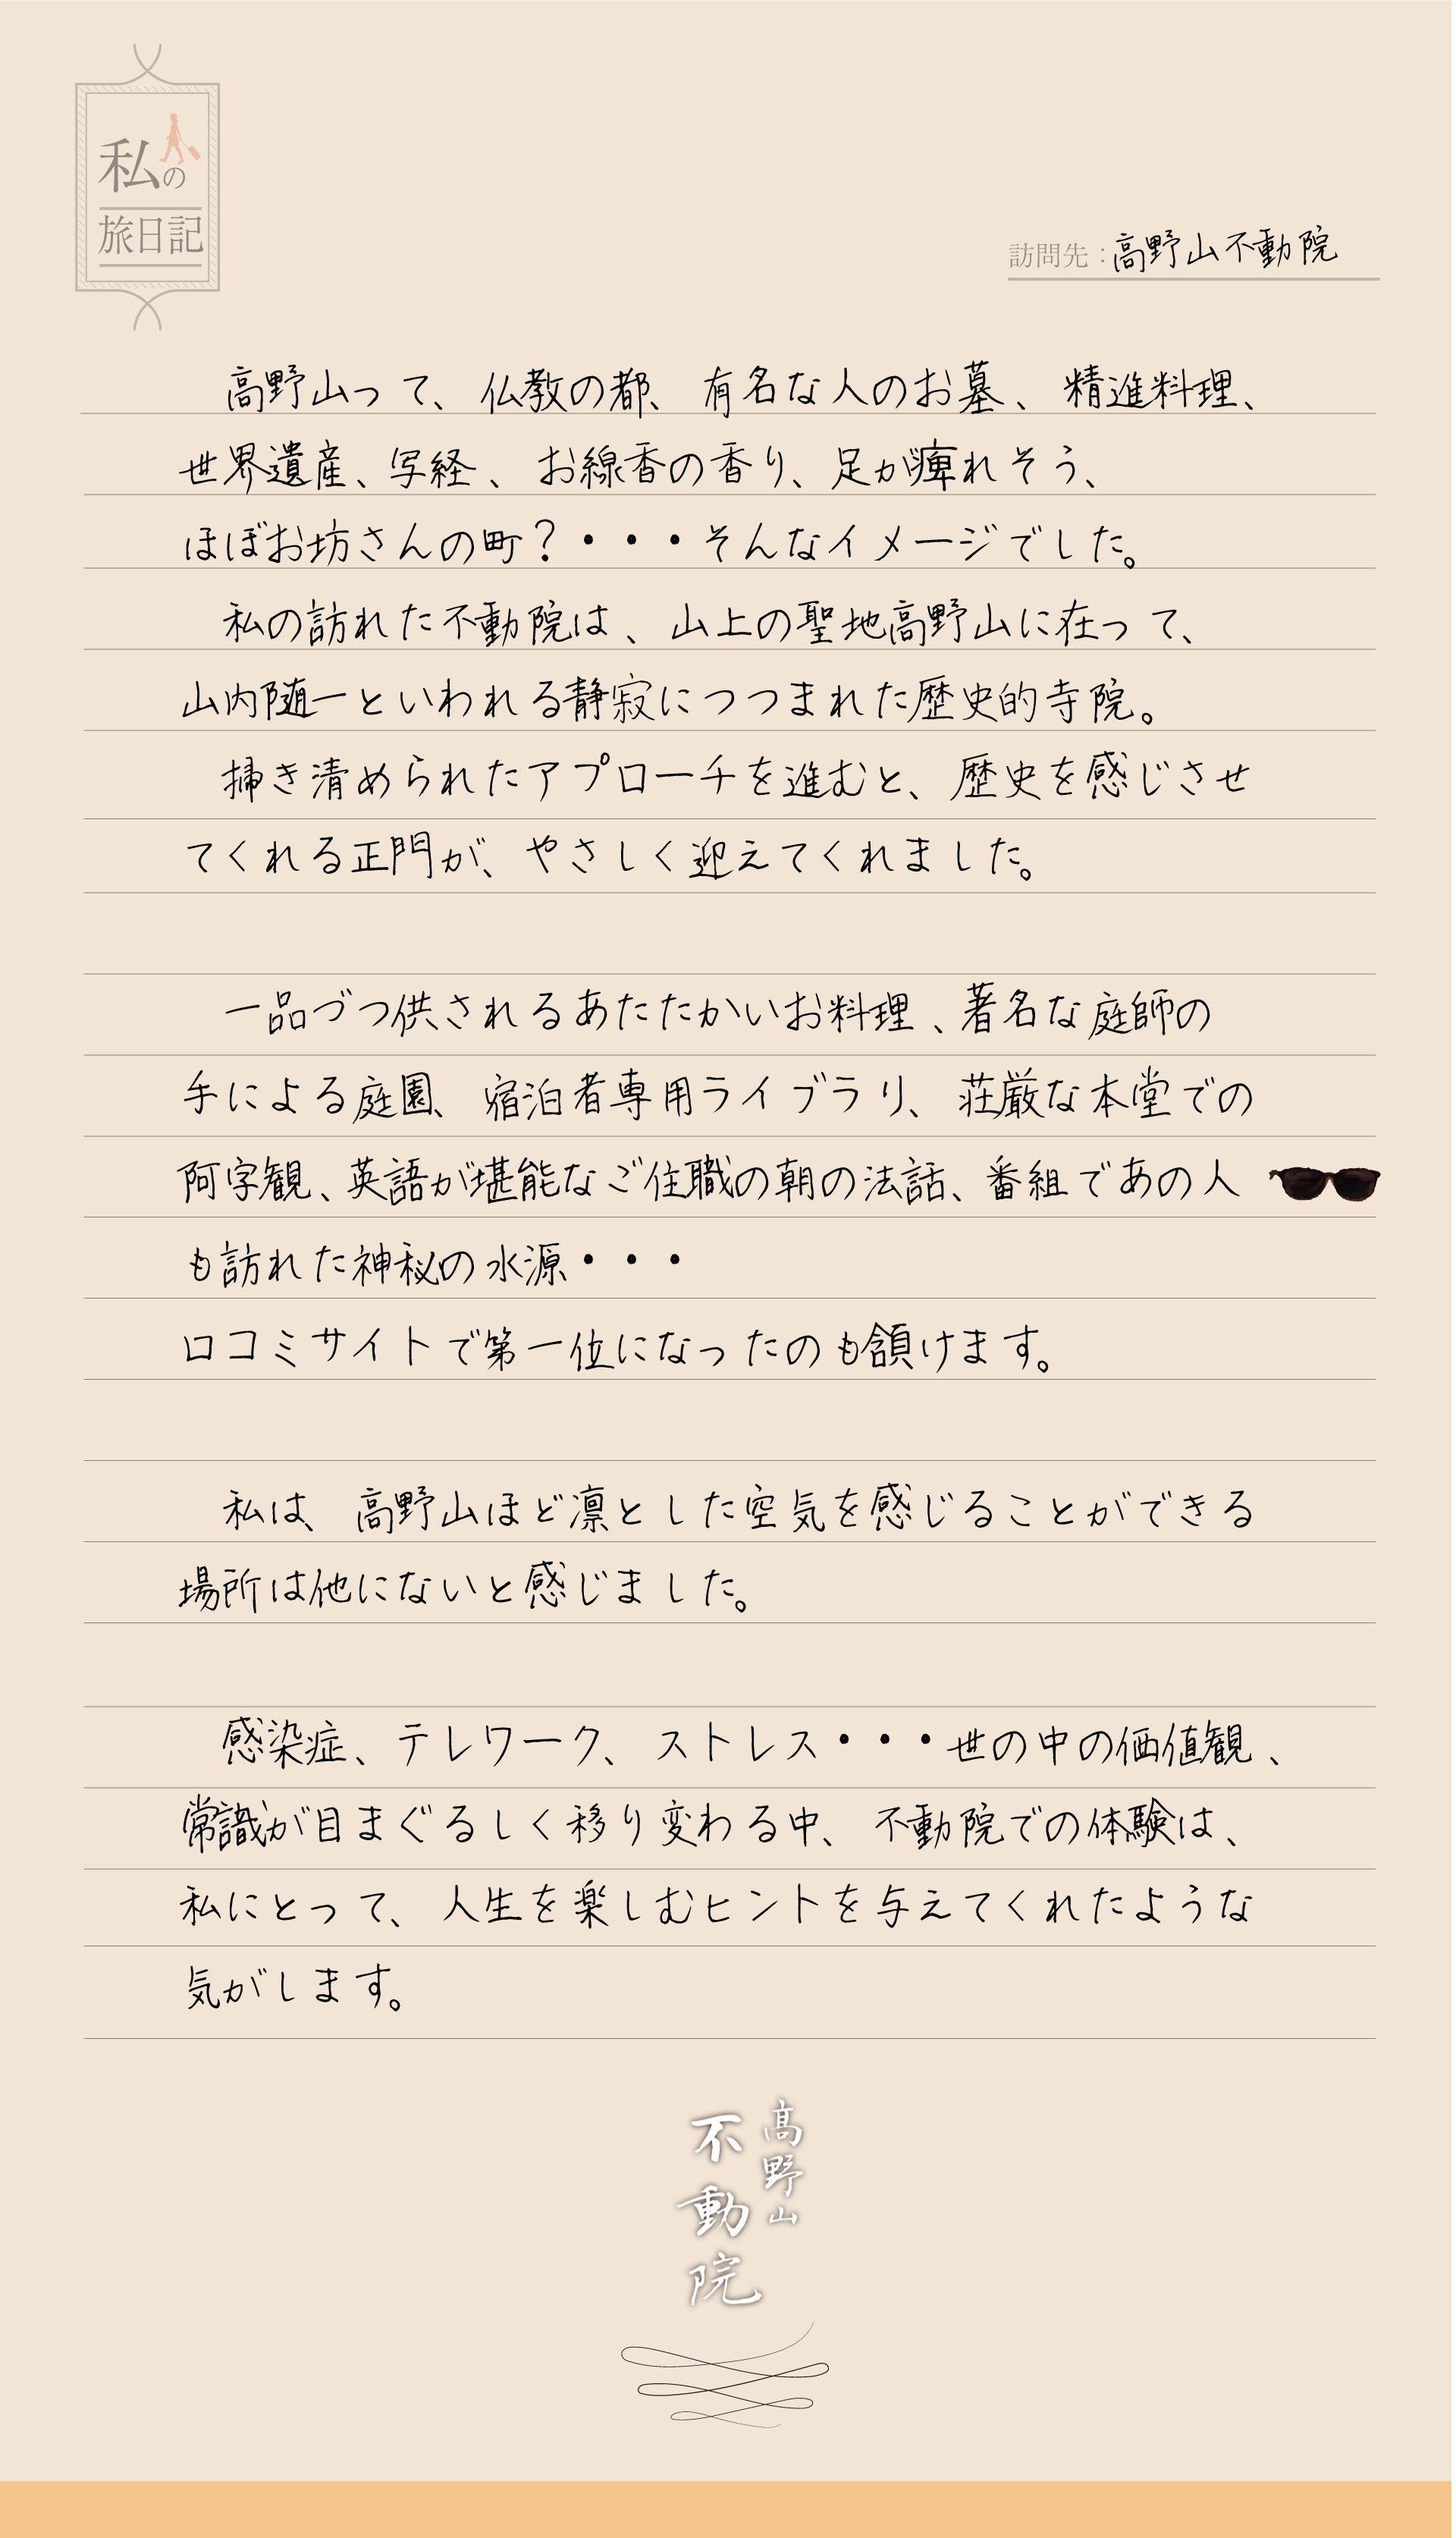 私の
旅日記
訪問先：高野山不動院
高野山って、仏教の都、有名な人のお墓、精進料理、
世界遺産、写経、お線香の香り、足が痺れそう、
ほぼお坊さんの町？・・・そんなイメージでした。
私の訪れた不動院は、山上の聖地高野山に在って、
山内随一といわれる静寂につつまれた歴史的寺院。
掃き清められたアプローチを進むと、歴史を感じさせ
てくれる正門が、やさしく迎えてくれました。
一品づつ供されるあたたかいお料理、著名な庭師の
手による庭園、宿泊者専用ライブラリ、荘厳な本堂での
阿字観、英語が堪能なご住職の朝の法話、番組であの人
も訪れた神秘の水源・・・
口コミサイトで第一位になったのも頷けます。
私は、高野山ほど凛とした空気を感じることができる
場所は他にないと感じました。
感染症、テレワーク、ストレス・・・世の中の価値観、
常識が目まぐるしく移り変わる中、不動院での体験は、
私にとって、人生を楽しむヒントを与えてくれたような
気がします。
高野山
不動院